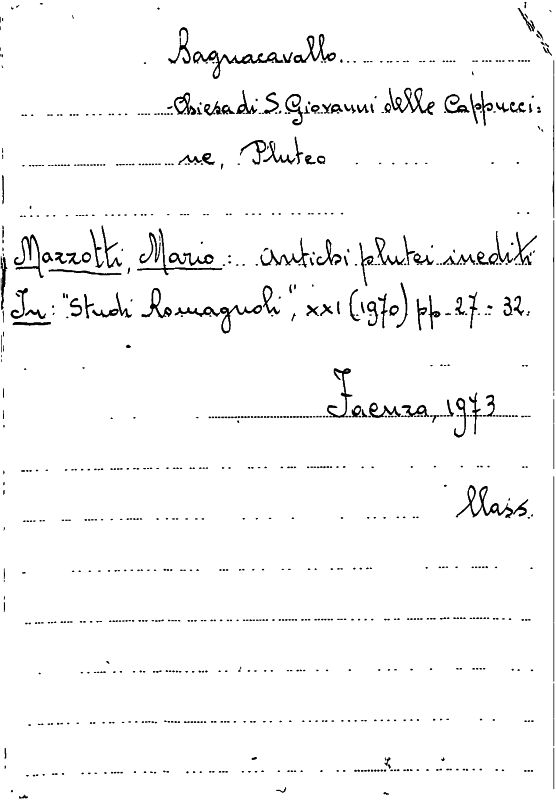 Bagnacavallo
- Chiesa di S. Giovanni delle Cappucci=
ne, Pluteo
Mazzotti, Mario: Antichi plutei inediti
In: "Studi Romagnoli", XXI (1970) pp. 27-32.
Faenza, 1973
Mass.